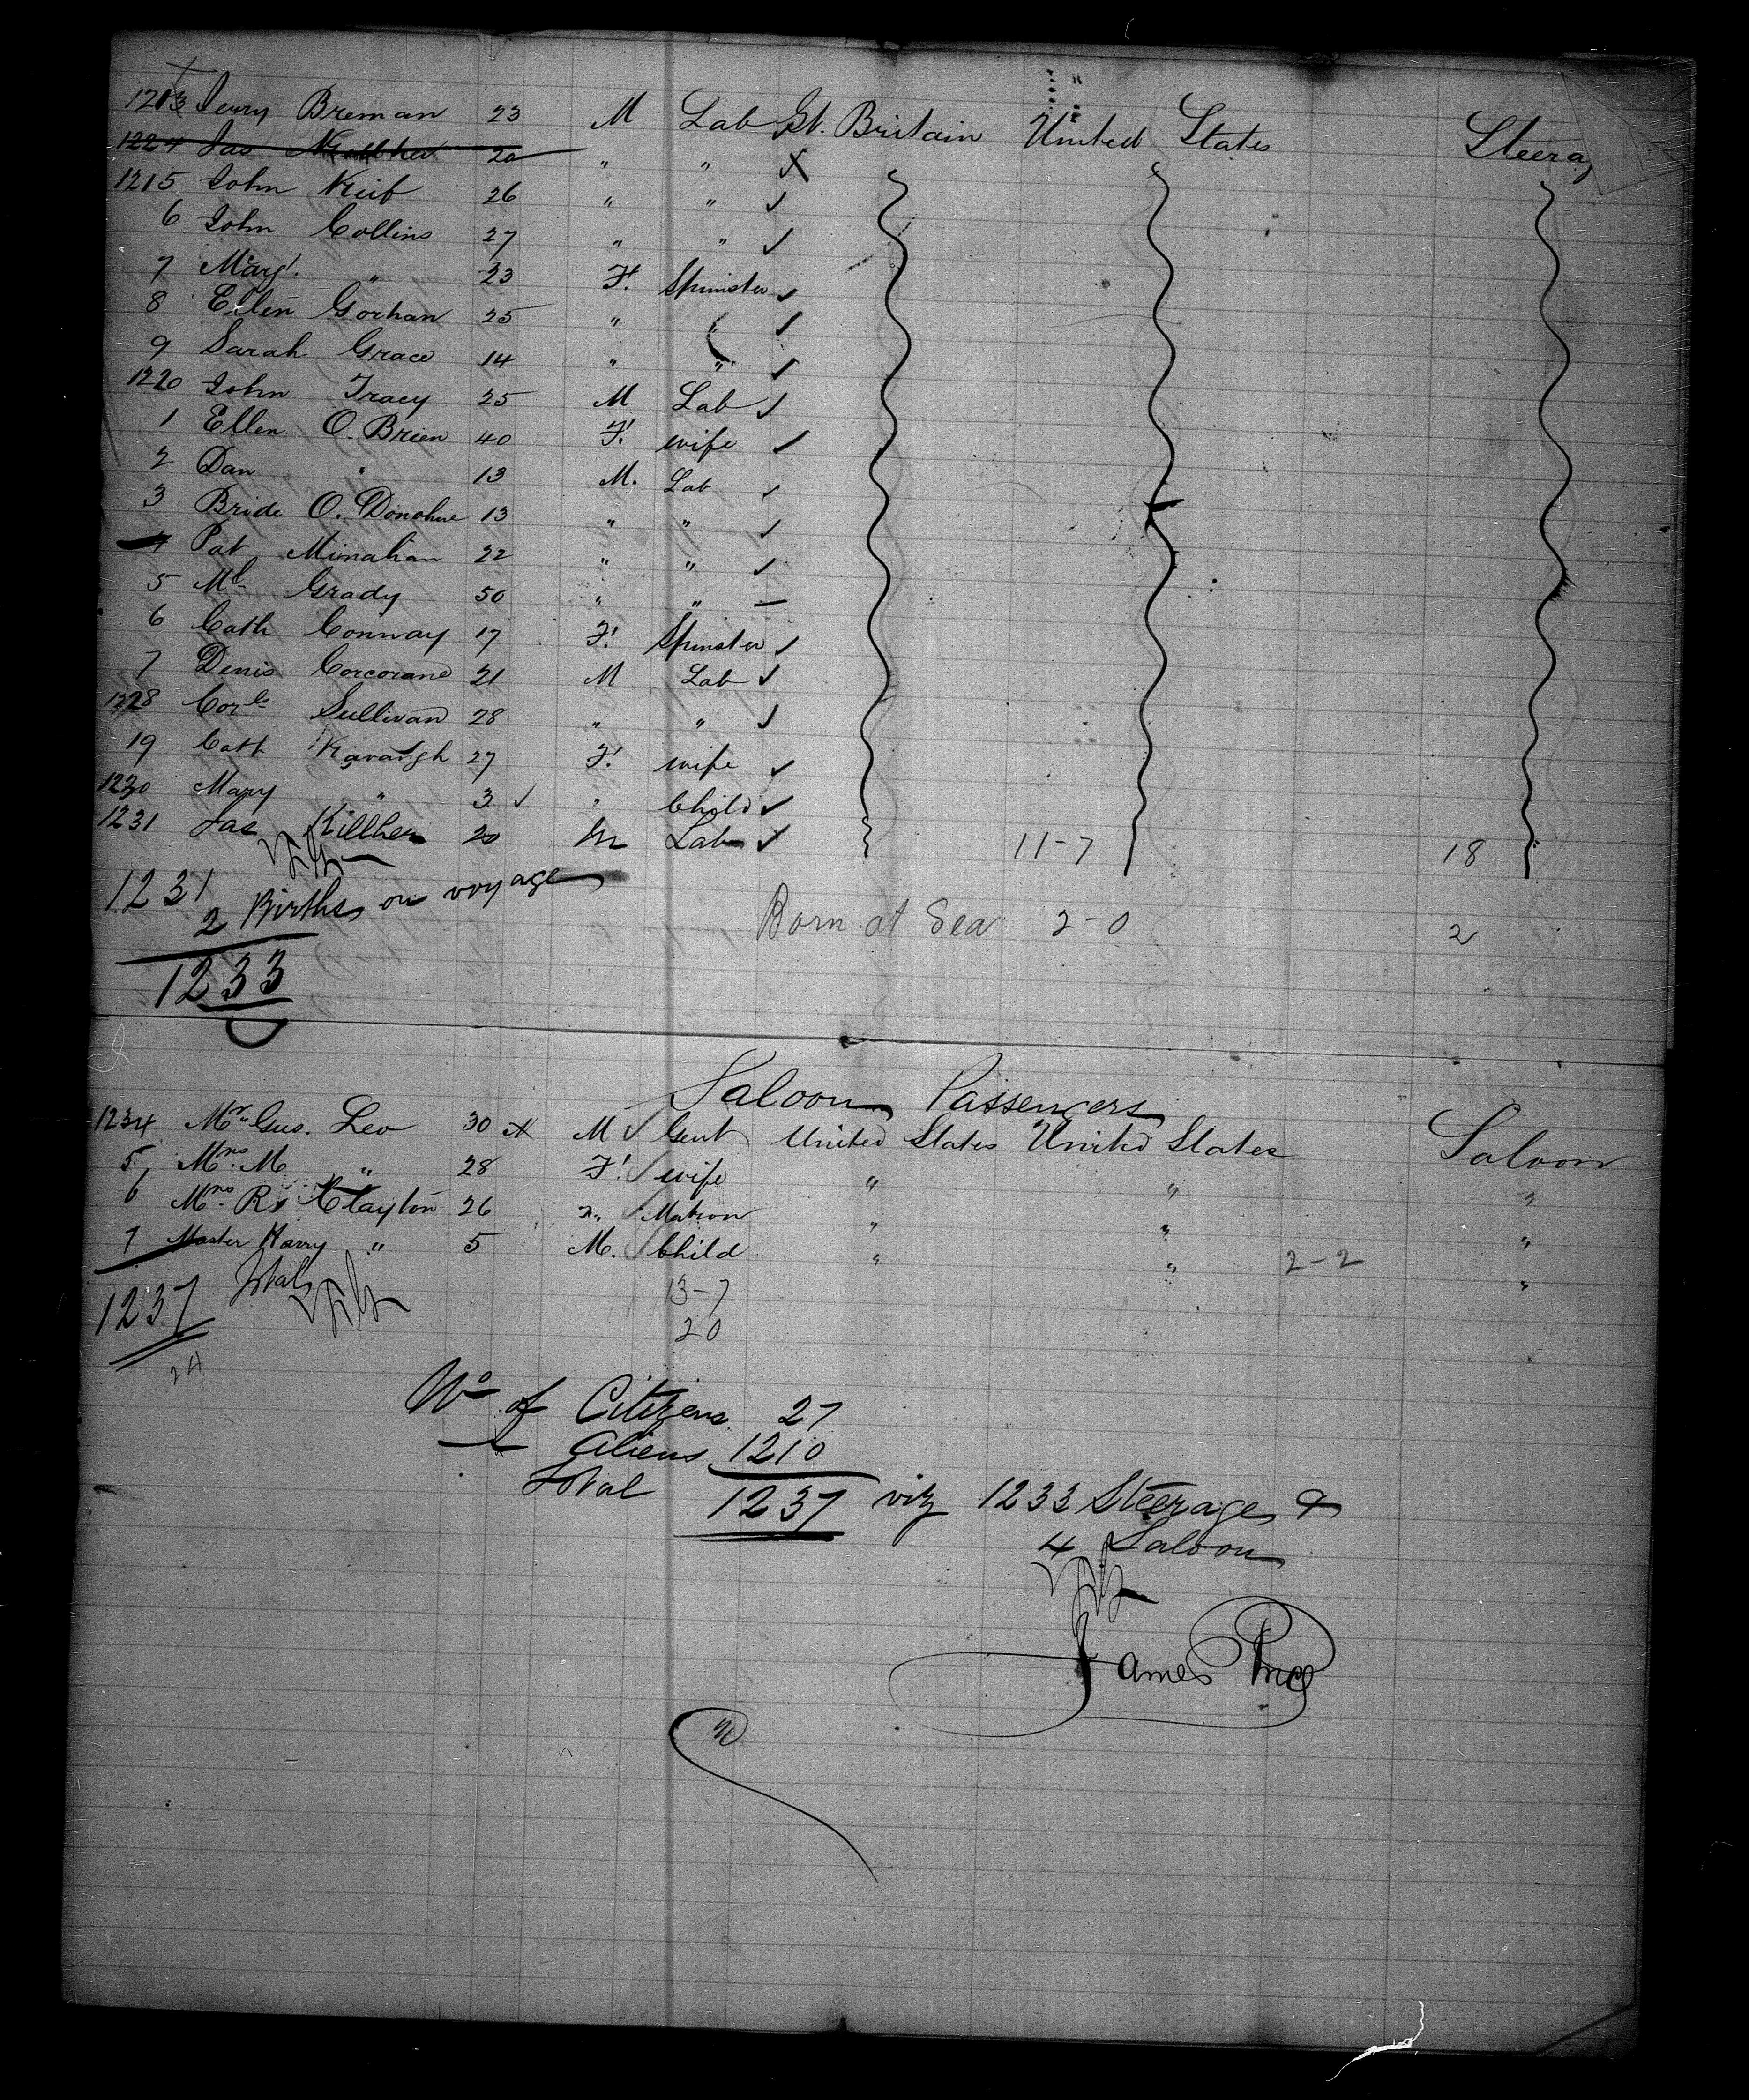 1213 Jerry Breman 23 M Lab Gt. Britain United States Steerag
1224 Jas 20 " " X
1215 John Keif 26 " " ✓
6 John Collins 27 " " ✓
7 Margt. " 23 F. Spinster ✓
8 Ellen Gorhan 25 " " ✓
9 Sarah Grace 14 " " ✓
1220 John Tracy 25 M Lab ✓
1 Ellen O. Brien 40 F. wife ✓
2 Dan " 13 M. Lab ✓
3 Bride O. Donohue 13 " " ✓
4 Pat Minahan 22 " " ✓
5 Ml Grady 50 " " —
6 Cath Conway 17 F. Spinster ✓
7 Denis Corcorane 21 M Lab ✓
1228 Corls Sullivan 28 " " ✓
19 Cath Kavangh 27 F. wife ✓
1230 Mary " 3 ✓ " Child ✓
1231 Jas Killher 20 M Lab ✓ 11-7 18
1231
2 Births on voyage Born at Sea 2-0 2
1233
Saloon Passengers
1234 Mr. Gus. Leo 30 X M ✓ Gent United States United States Saloon
5 Mrs. M " 28 F. ✓ wife " " "
6 Mrs. R. Clayton 26 " ✓ Matron " " "
7 Master Harry " 5 M. ✓ Child " " 2-2 "
1237 Total 13-7
20
24
No of Citizens 27
Aliens 1210
Total 1237 viz 1233 Steerage &
4 Saloon
James Price